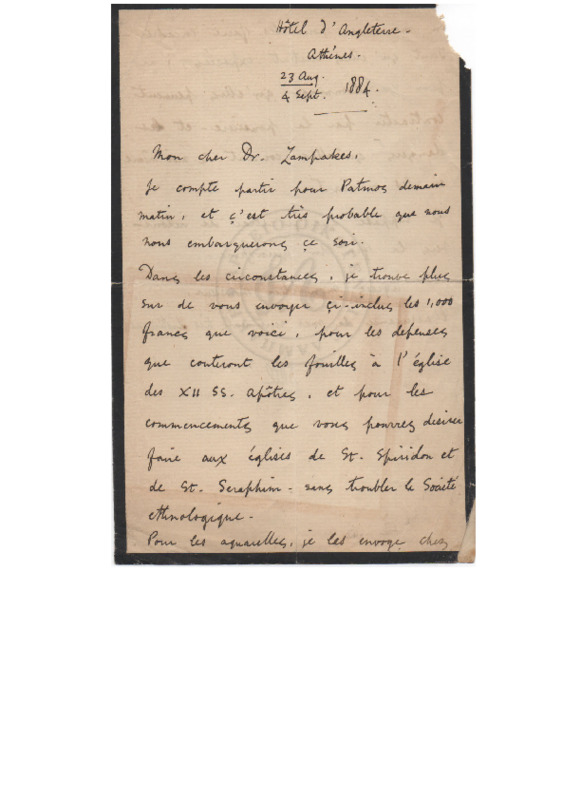 Hôtel d'Angleterre.
Athénes.
23 Aug.
4 Sept. 1884.
Mon cher Dr. Zampakes,
Je compte partir pour Patmos demain
matin, et ç'est très probable que nous
nous embarquerons çe soir.
Dans les circonstances, je trouve plus
sur de vous envoyer çi-inclus les 1,000
francs que voici, pour les depenses
que couteront les fouilles à l'église
des XII SS. Apôtres, et pour les
commencements que vous pourrez desirer
faire aux églises de St. Spiridon et
de St. Seraphim - sans troubler la Société
ethnologique.
Pour les aquarelles, je les envoye chez